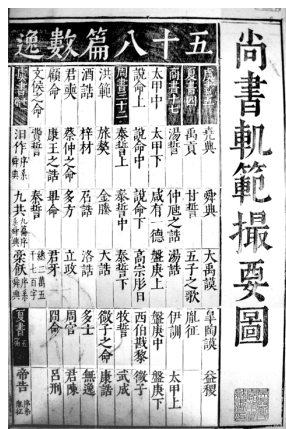 尚書軌範撮要圖
五十八篇數逸
虞書五 堯典 舜典 大禹謨 皋陶謨 益稷
夏書四 禹貢 甘誓 五子之歌 胤征
商書十七 湯誓 仲虺之誥 湯誥 伊訓 太甲上
太甲中 太甲下 咸有一德 盤庚上 盤庚中 盤庚下
說命上 說命中 說命下 高宗肜日 西伯戡黎 微子
周書三十二 泰誓上 泰誓中 泰誓下 牧誓 武成
洪範 旅獒 金縢 大誥 微子之命 康誥
酒誥 梓材 召誥 洛誥 多士 無逸
君奭 蔡仲之命 多方 立政 周官 君陳
顧命 康王之誥 畢命 君牙 冏命 呂刑
文侯之命 費誓 秦誓 總二萬五千七百字
汩作序系舜典 九共九篇序系舜典 槀飫序系舜典 夏書 帝告序系胤征